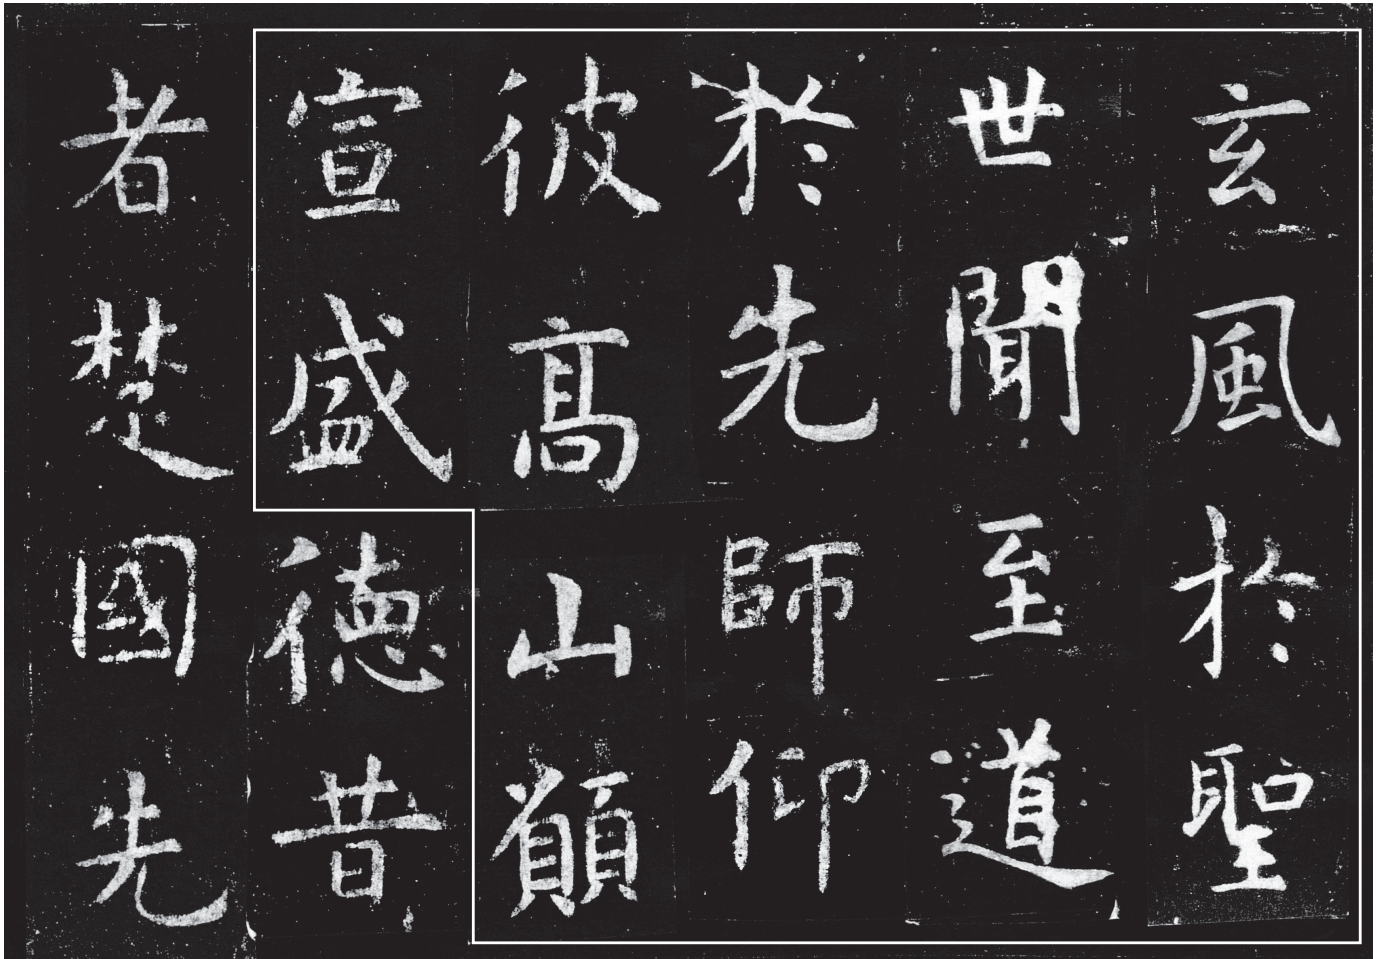 玄風於聖
世聞至道
於先師仰
彼高山願
宣盛德昔
者楚國先